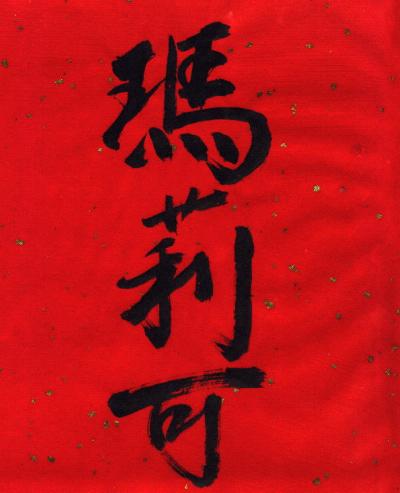 瑪莉可